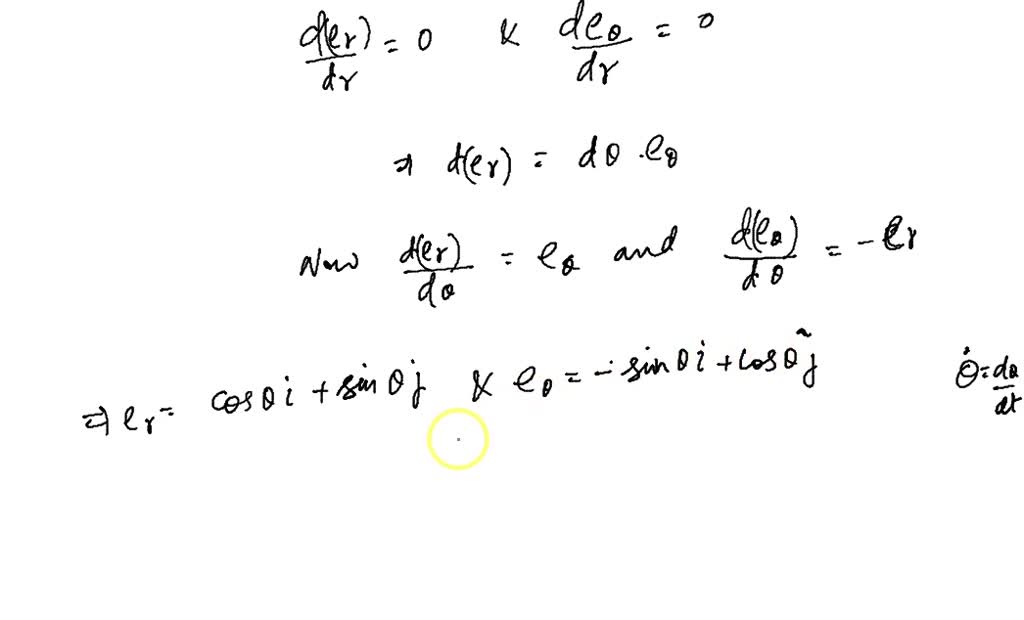 d(er)/dr = 0 & deθ/dr = 0
⇒ d(er) = dθ . eθ
Now d(er)/dθ = eθ and d(eθ)/dθ = - er
⇒ er = cosθ i + sinθ j & eθ = - sinθ i + cosθ j
θ̇ = dθ/dt